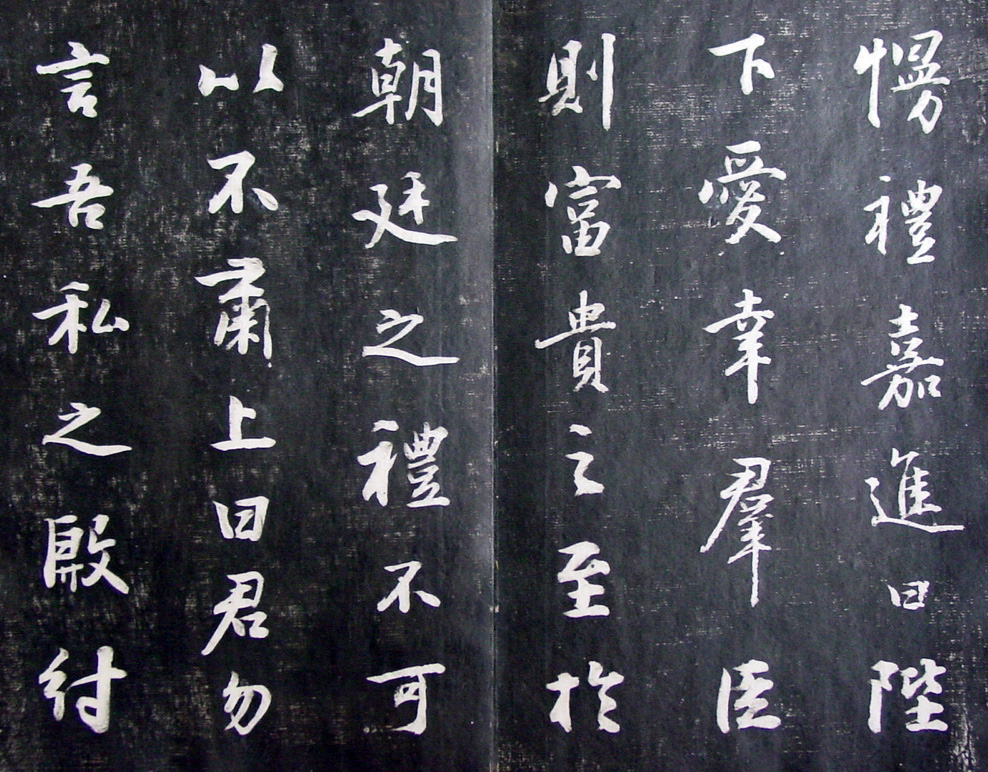 慢禮嘉進曰陛
下愛幸羣臣
則富貴之至於
朝廷之禮不可
以不肅上曰君勿
言吾私之殿付